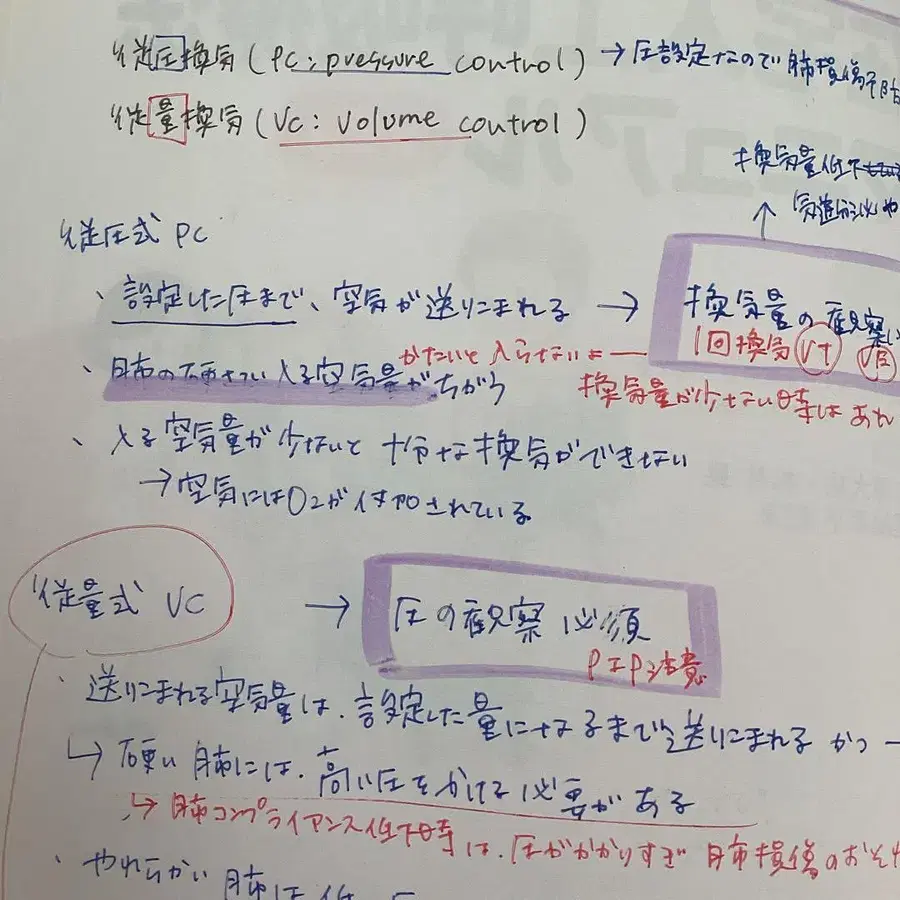 従圧換気(PC:pressure control)→圧設定なので肺損傷予防
従量換気(VC:volume control)
換気量低下
従圧式 PC
・設定した圧まで、空気が送りこまれる → 換気量の観察
1回換気 VT VE
・肺の硬さで入る空気量がちがう
かたいと入らないよ
換気量が少ない時は
・入る空気量が少ないと十分な換気ができない
→空気にはO2が付加されている
従量式 VC → 圧の観察必須
注意
・送りこまれる空気量は、設定した量になるまで送りこまれる かつ→
↳硬い肺には、高い圧をかける必要がある
↳肺コンプライアンス低下時は、圧がかかりすぎ肺損傷のおそれ
・やわらかい肺は低